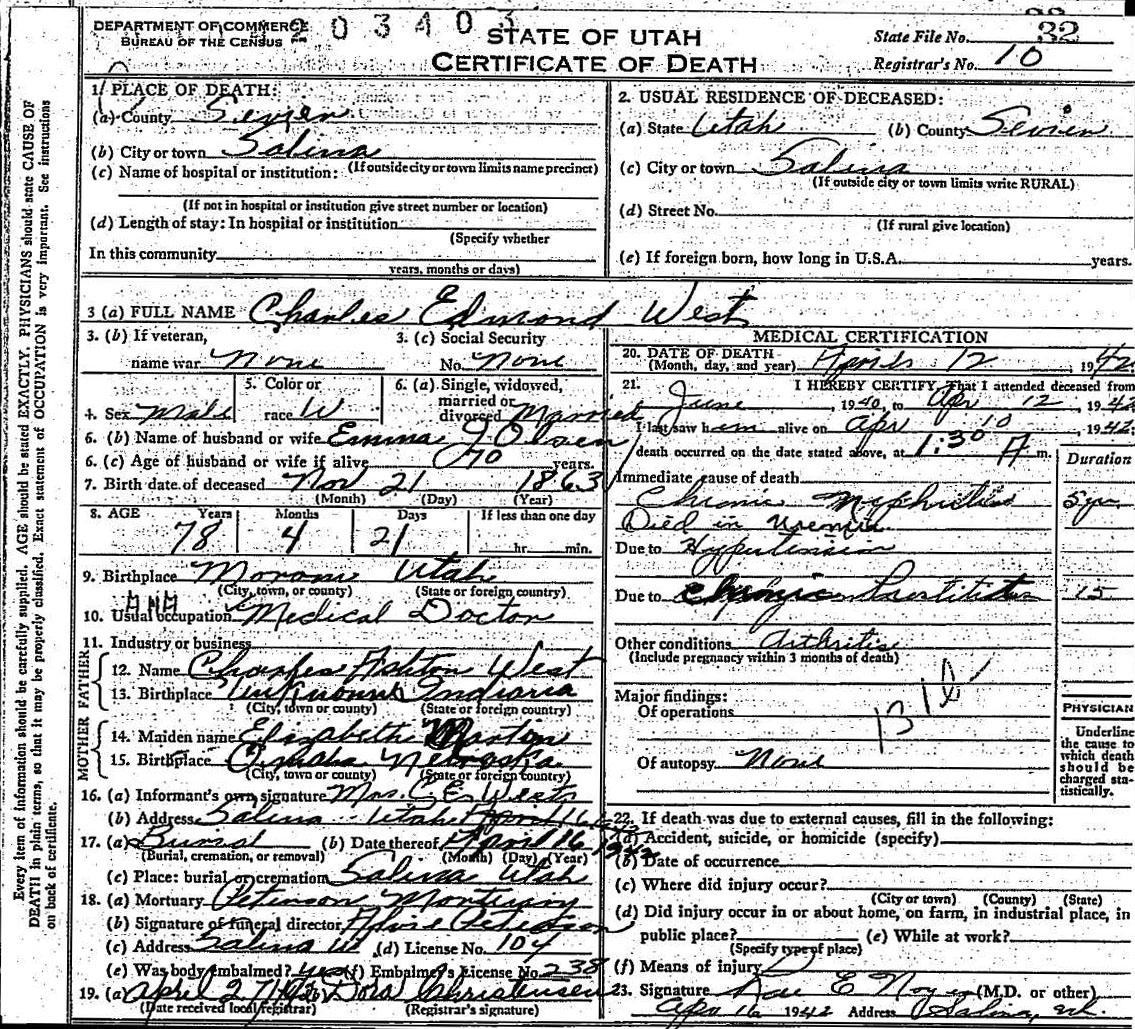 DEPARTMENT OF COMMERCE
BUREAU OF THE CENSUS
203403
STATE OF UTAH
CERTIFICATE OF DEATH
State File No. 32
Registrar's No. 10
Every item of information should be carefully supplied. AGE should be stated EXACTLY. PHYSICIANS should state CAUSE OF
DEATH in plain terms, so that it may be properly classified. Exact statement of OCCUPATION is very important. See instructions
on back of certificate.
1. PLACE OF DEATH:
(a) County Sevier
(b) City or town Salina
(If outside city or town limits name precinct)
(c) Name of hospital or institution:
(If not in hospital or institution give street number or location)
(d) Length of stay: In hospital or institution
(Specify whether
In this community
years, months or days)
2. USUAL RESIDENCE OF DECEASED:
(a) State Utah (b) County Sevier
(c) City or town Salina
(If outside city or town limits write RURAL)
(d) Street No.
(If rural give location)
(e) If foreign born, how long in U.S.A. years.
3 (a) FULL NAME Charles Edmond West
3. (b) If veteran, name war None
3. (c) Social Security No. None
4. Sex Male
5. Color or race W
6. (a) Single, widowed, married or divorced Married
6. (b) Name of husband or wife Emma J Olsen
6. (c) Age of husband or wife if alive 70 years.
7. Birth date of deceased Nov 21 1863
(Month) (Day) (Year)
8. AGE Years Months Days If less than one day
78 4 21 hr. min.
9. Birthplace Moroni Utah
(City, town, or county) (State or foreign country)
10. Usual occupation Medical Doctor
11. Industry or business
FATHER
12. Name Charles Ashton West
13. Birthplace Unknown Indiana
(City, town or county) (State or foreign country)
MOTHER
14. Maiden name Elizabeth
15. Birthplace Omaha Nebraska
(City, town or county) (State or foreign country)
16. (a) Informant's own signature Mrs. C. E. West
(b) Address Salina Utah April 16
17. (a) Burial (b) Date thereof April 16 1942
(Burial, cremation, or removal) (Month) (Day) (Year)
(c) Place: burial or cremation Salina Utah
18. (a) Mortuary Peterson Mortuary
(b) Signature of funeral director Peterson
(c) Address Salina Ut (d) License No. 104
(e) Was body embalmed? yes (f) Embalmer's License No. 238
19. (a) April 27 1942 (b) Dora Christensen
(Date received local registrar) (Registrar's signature)
MEDICAL CERTIFICATION
20. DATE OF DEATH April 12 1942
(Month, day, and year)
21. I HEREBY CERTIFY, That I attended deceased from
June, 1940, to Apr 12, 1942
I last saw him alive on Apr 10, 1942;
death occurred on the date stated above, at 1:30 A m.
Duration
Immediate cause of death
Chronic Nephritis 5 yr
Died in Uremia
Due to Hypertension
Due to Chronic Prostitis 15
Other conditions Arthritis
(Include pregnancy within 3 months of death)
Major findings:
Of operations
Of autopsy None
PHYSICIAN
Underline
the cause to
which death
should be
charged sta-
tistically.
22. If death was due to external causes, fill in the following:
(a) Accident, suicide, or homicide (specify)
(b) Date of occurrence
(c) Where did injury occur?
(City or town) (County) (State)
(d) Did injury occur in or about home, on farm, in industrial place, in
public place? (e) While at work?
(Specify type of place)
(f) Means of injury
23. Signature Rae E Noyes (M.D. or other)
Apr 16 1942 Address Salina, Ut.